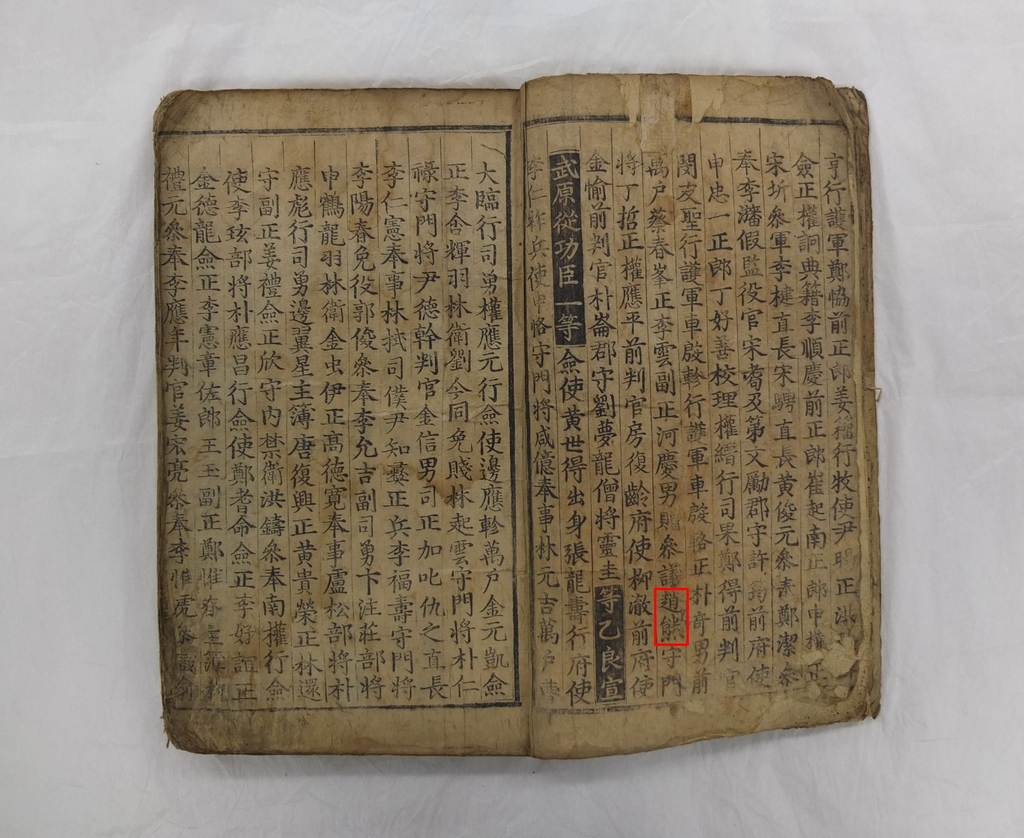 亨行護軍鄭恊前正郎姜籀行牧使尹晹正洪
僉正權詗典籍李順慶前正郎崔起南正郎申
宋圻叅軍李楗直長宋騁直長黃俊元叅奉鄭潔叅
奉李瀋假監役官宋耉及第文勵郡守許前府使
申忠一正郎丁好善校理權縉行司果鄭得前判官
閔友聖行護軍車殷軫行護軍車殷輅正朴奇男前
萬户蔡春峯正李雲副正河慶男贈叅議趙熊守門
將丁哲正權應平前判官房復齡府使柳澈前府使
金愉前判官朴崙郡守劉夢龍僧將靈圭等乙良宣
武原從功臣一等僉使黃世得出身張龍壽行府使
李仁祚兵使申恪守門將咸億奉事林元吉萬户
大臨行司勇權應元行僉使邊應軫萬户金元凱僉
正李舍輝羽林衛劉今同免賤林起雲守門將朴仁
祿守門將尹德幹判官金信男司正加叱仇之直長
李仁憲奉事林拭司僕尹知正兵李福壽守門將
李陽春免役郭俊叅奉李允吉副司勇卞注莊部將
申鶴龍羽林衛金虫伊正髙德寬奉事盧松部將朴
應彪行司勇邊翼星主簿唐復興正黃貴榮正林還
守副正姜禮僉正欣守内禁衛洪鑄叅奉南權行僉
使李玹部將朴應昌行僉使鄭耆命僉正李好誼正
金德龍僉正李憲章佐郎王玉副正鄭惟主簿
禮元叅奉李應年判官姜宏亮叅奉李惟虎